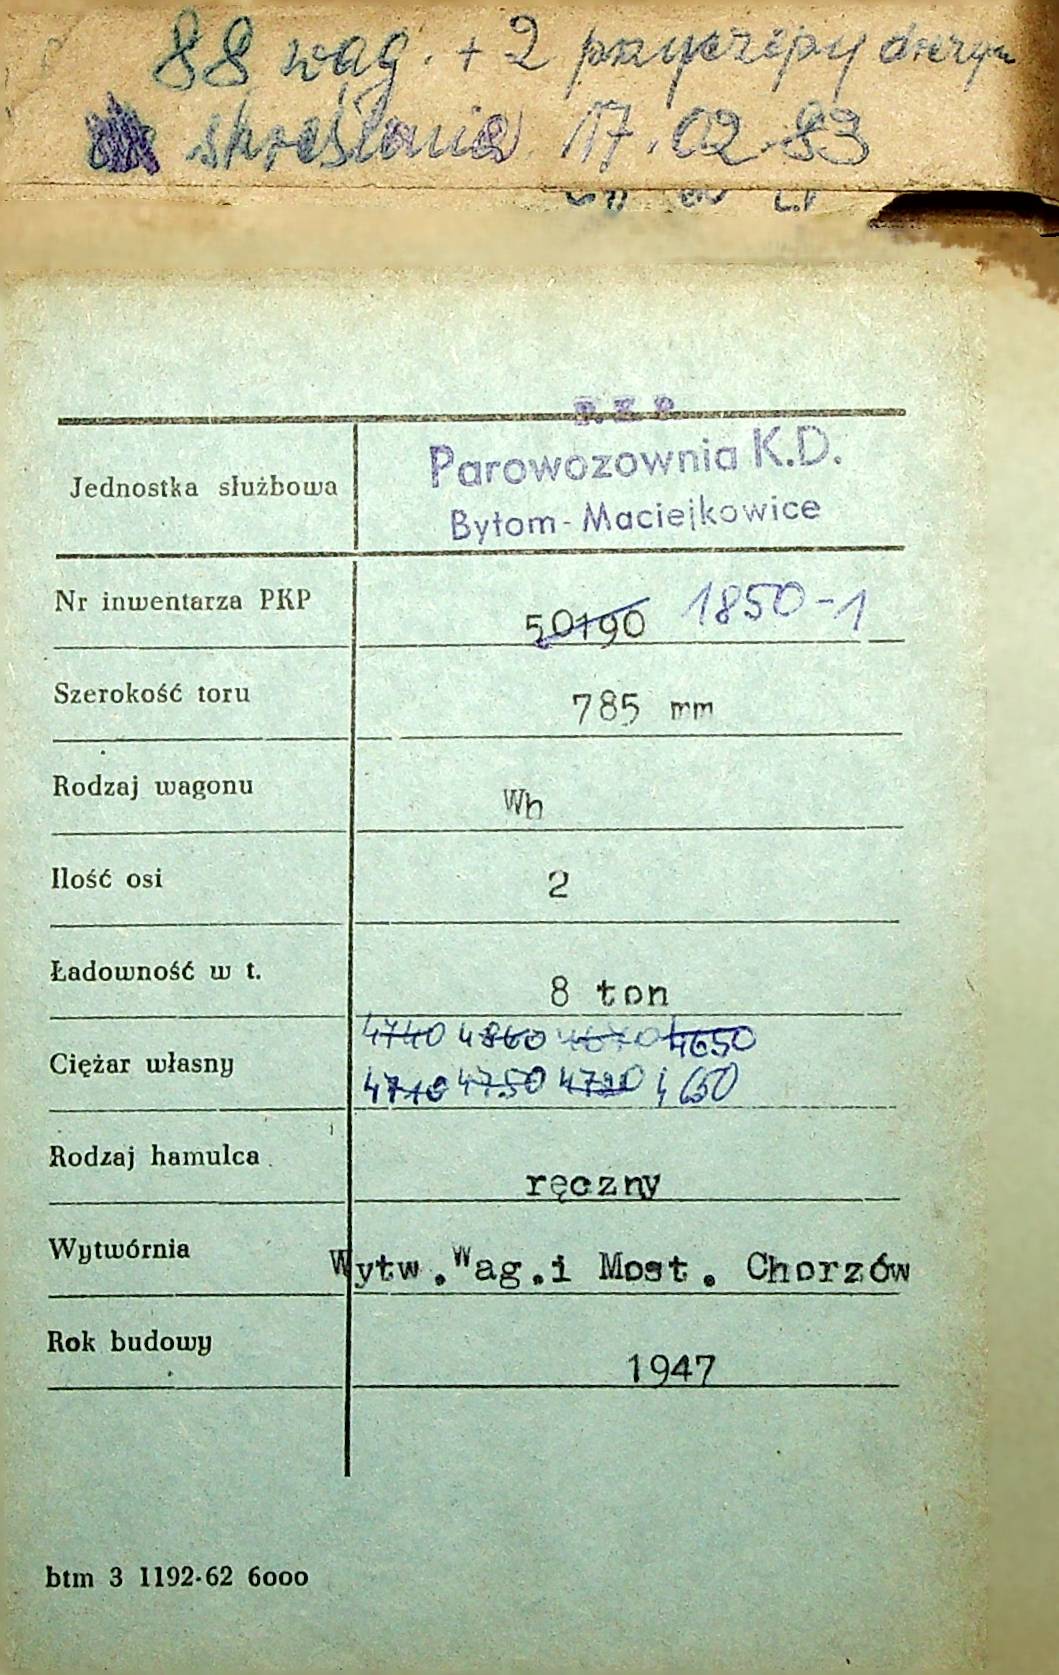 88 wag. + 2 przyczepy drezyn
skreślania 17.02.83
P.K.P.
Parowozownia K.D.
Bytom-Maciejkowice
Jednostka służbowa
Nr inwentarza PKP 50190 1850-1
Szerokość toru 785 mm
Rodzaj wagonu Wh
Ilość osi 2
Ładowność w t. 8 ton
4740 4860 4670 4650
Ciężar własny
4710 4750 4650
Rodzaj hamulca ręczny
Wytwórnia Wytw.Wag.i Most. Chorzów
Rok budowy 1947
btm 3 1192-62 6000